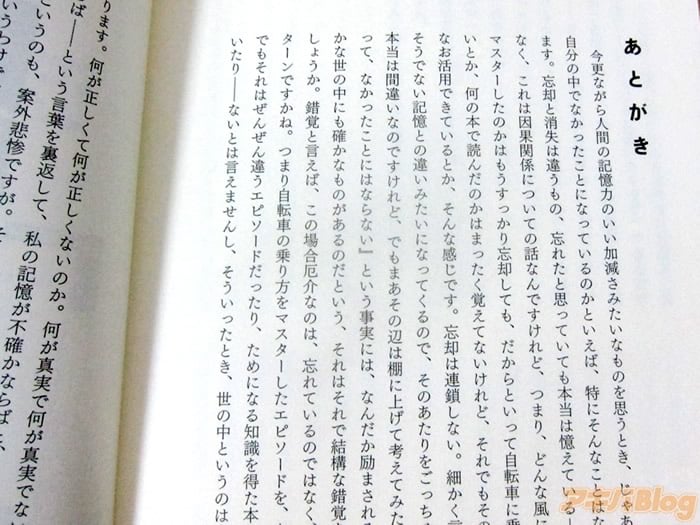 あとがき
今更ながら人間の記憶力のいい加減さみたいなものを思うとき、じゃあ
自分の中でなかったことになっているのかといえば、特にそんなことは
ます。忘却と消失は違うもの、忘れたと思っていても本当は憶えている
なく、これは因果関係についての話なんですけれど、つまり、どんな風に
マスターしたのかはもうすっかり忘却しても、だからといって自転車に乗
いとか、何の本で読んだのかはまったく覚えてないけれど、それでもその
なお活用できているとか、そんな感じです。忘却は連鎖しない。細かく言
そうでない記憶との違いみたいになってくるので、そのあたりをごっち
本当は間違いなのですけれど、でもまあその辺は棚に上げて考えてみた
って、なかったことにはならない』という事実には、なんだか励まされる
かな世の中にも確かなものがあるのだという、それはそれで結構な錯覚
しょうか。錯覚と言えば、この場合厄介なのは、忘れているのではなく、
ターンですかね。つまり自転車の乗り方をマスターしたエピソードを、
でもそれはぜんぜん違うエピソードだったり、ためになる知識を得た本
いたり――ないとは言えませんし、そういったとき、世の中というのは
ります。何が正しくて何が正しくないのか。何が真実で何が真実でな
ば――という言葉を裏返して、私の記憶が不確かならば――と、
というのも、案外悲惨ですが。そ
いうわけで
アキバBlog